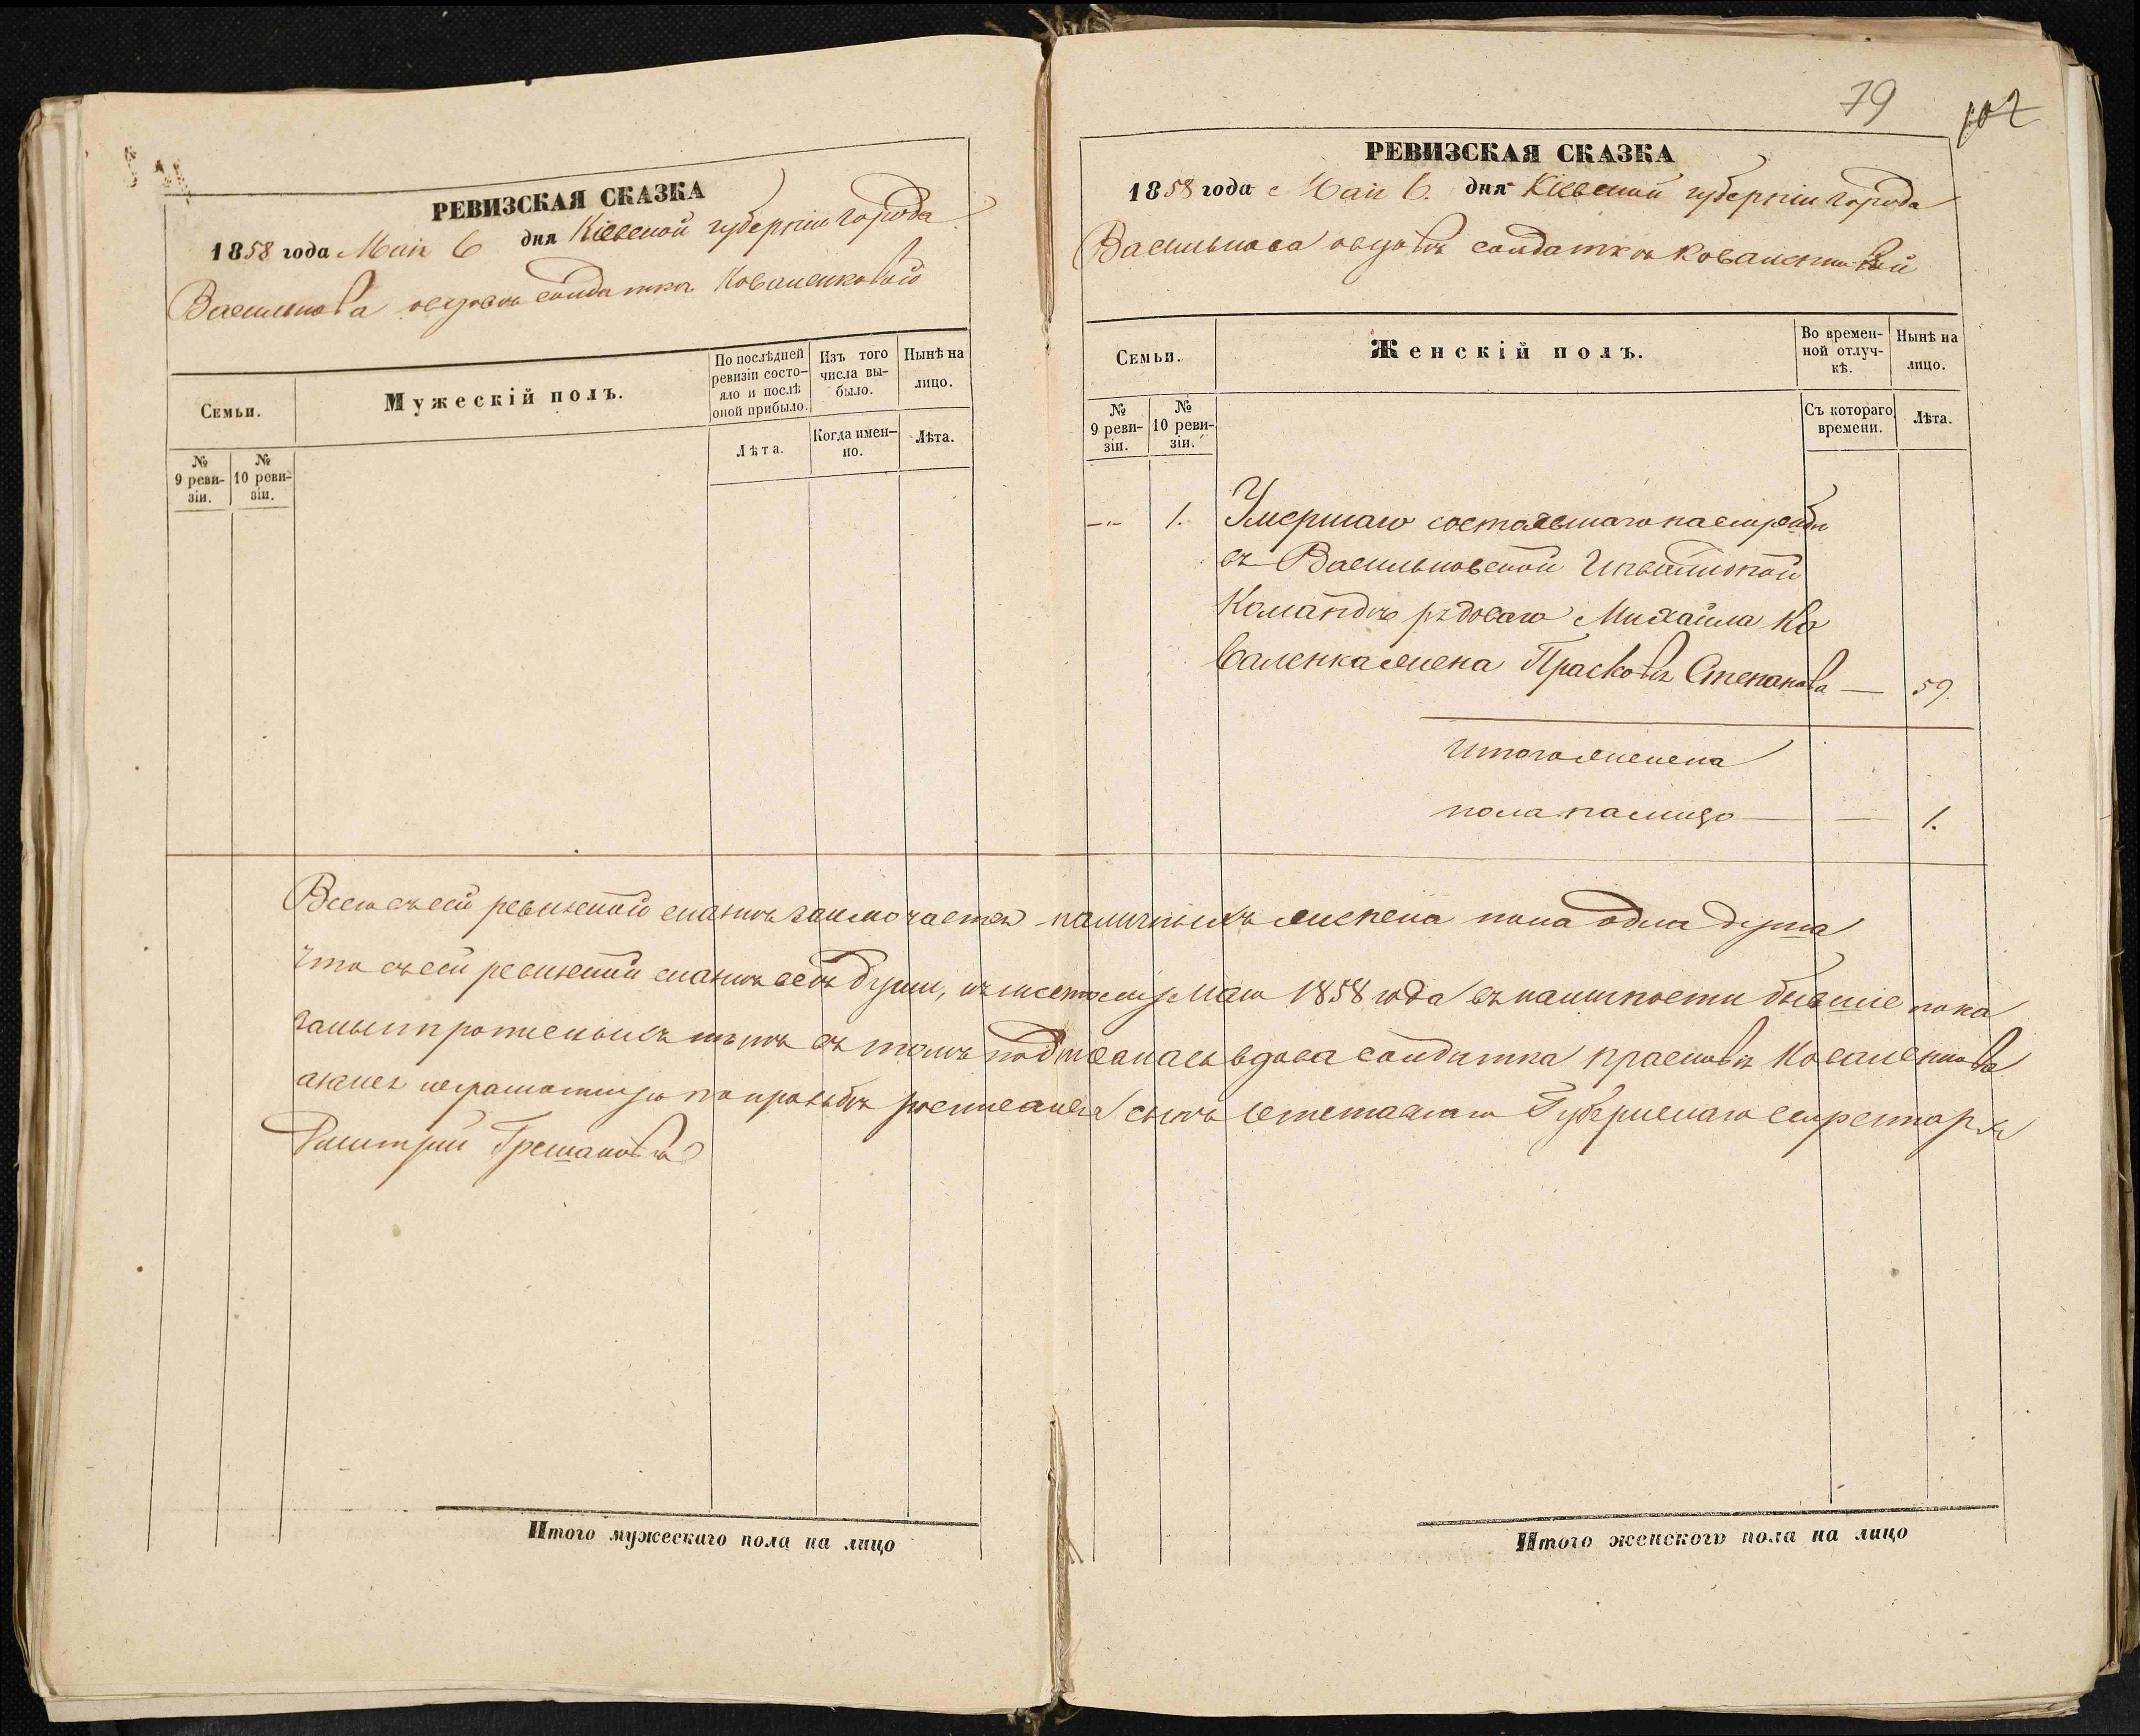 РЕВИЗСКАЯ СКАЗКА
1858 года Маія 6 дня Кіевской губерніи города
Василькова о вдовѣ солдаткѣ Коваленковой
Семьи.
Мужескій полъ.
По послѣдней ревизіи состо-
яло и послѣ оной прибыло.
Изъ того числа вы-
было.
Нынѣ на лицо.
№ 9 реви-
зіи.
№ 10 реви-
зіи.
Лѣта.
Когда имен-
но.
Лѣта.
Итого мужескаго пола на лицо
79
102
РЕВИЗСКАЯ СКАЗКА
1858 года Маія 6. дня Кіевской губерніи города
Василькова о вдовѣ солдаткѣ Коваленковой
Семьи.
Женскій полъ.
Во времен-
ной отлуч-
кѣ.
Нынѣ на
лицо.
№
9 реви-
зіи.
№
10 реви-
зіи.
Съ котораго
времени.
Лѣта.
1. Умершаго состоявшаго на службѣ
въ Васильковской Инвалидной
Командѣ рядоваго Михаила Ко
валенка жена Прасковья Степанова — 59.
Итого женска
пола на лицо — 1.
Всего въ сей ревизской сказкѣ заключается наличныхъ женска пола одна душа
Что въ сей ревизской сказкѣ всѣ души, къ числу Маія 1858 года въ наличности бывшіе пока
заны и прописныхъ нѣтъ въ томъ подписалась вдова солдатка Прасковья Коваленкова
а за нея неграмотную по прозьбѣ росписался сынъ отставнаго Губернскаго секретаря
Дмитрій
Итого женскаго пола на лицо